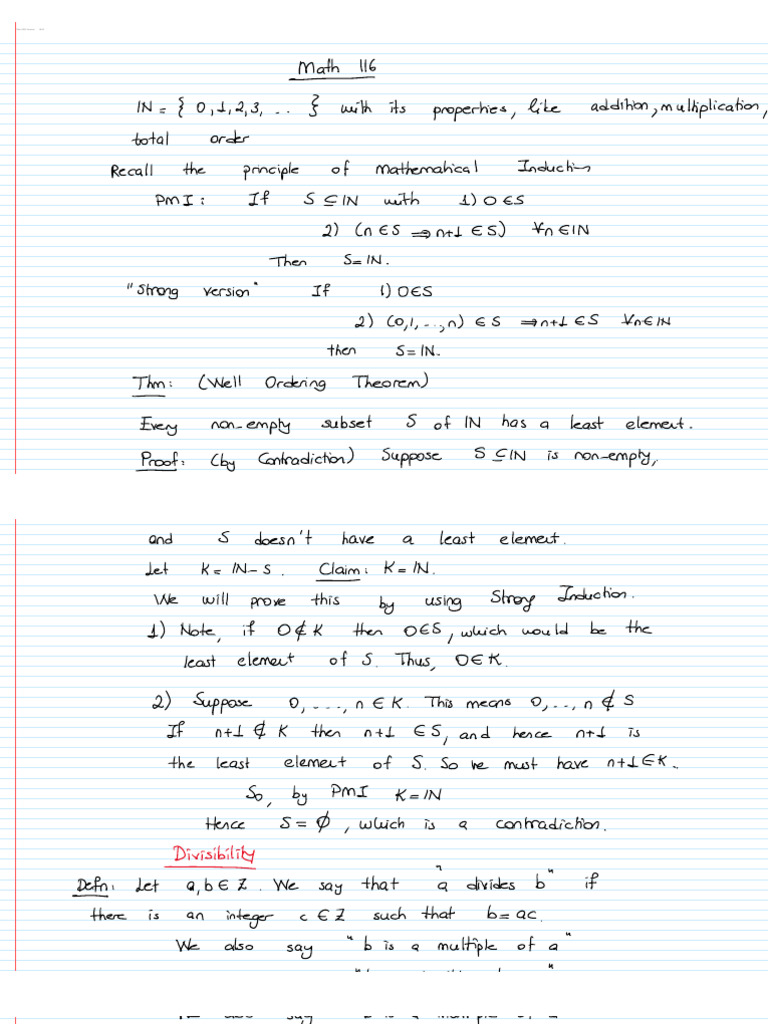 Math 116
IN = { 0,1,2,3, ... } with its properties, like addition, multiplication,
total order
Recall the principle of mathematical Induction
PMI: If S ⊆ IN with 1) 0 ∈ S
2) (n ∈ S ⇒ n+1 ∈ S) ∀n ∈ IN
Then S = IN.
"Strong version" If 1) 0 ∈ S
2) (0,1,...,n) ∈ S ⇒ n+1 ∈ S ∀n ∈ IN
then S = IN.
Thm: (Well Ordering Theorem)
Every non-empty subset S of IN has a least element.
Proof: (by Contradiction) Suppose S ⊆ IN is non-empty,
and S doesn't have a least element.
Let K = IN - S. Claim: K = IN.
We will prove this by using Strong Induction.
1) Note, if 0 ∉ K then 0 ∈ S, which would be the
least element of S. Thus, 0 ∈ K.
2) Suppose 0, ..., n ∈ K. This means 0, .., n ∉ S
If n+1 ∉ K then n+1 ∈ S, and hence n+1 is
the least element of S. So we must have n+1 ∈ K.
So, by PMI K = IN
Hence S = ∅, which is a contradiction.
Divisibility
Defn: Let a,b ∈ Z. We say that "a divides b" if
there is an integer c ∈ Z such that b = ac.
We also say "b is a multiple of a"